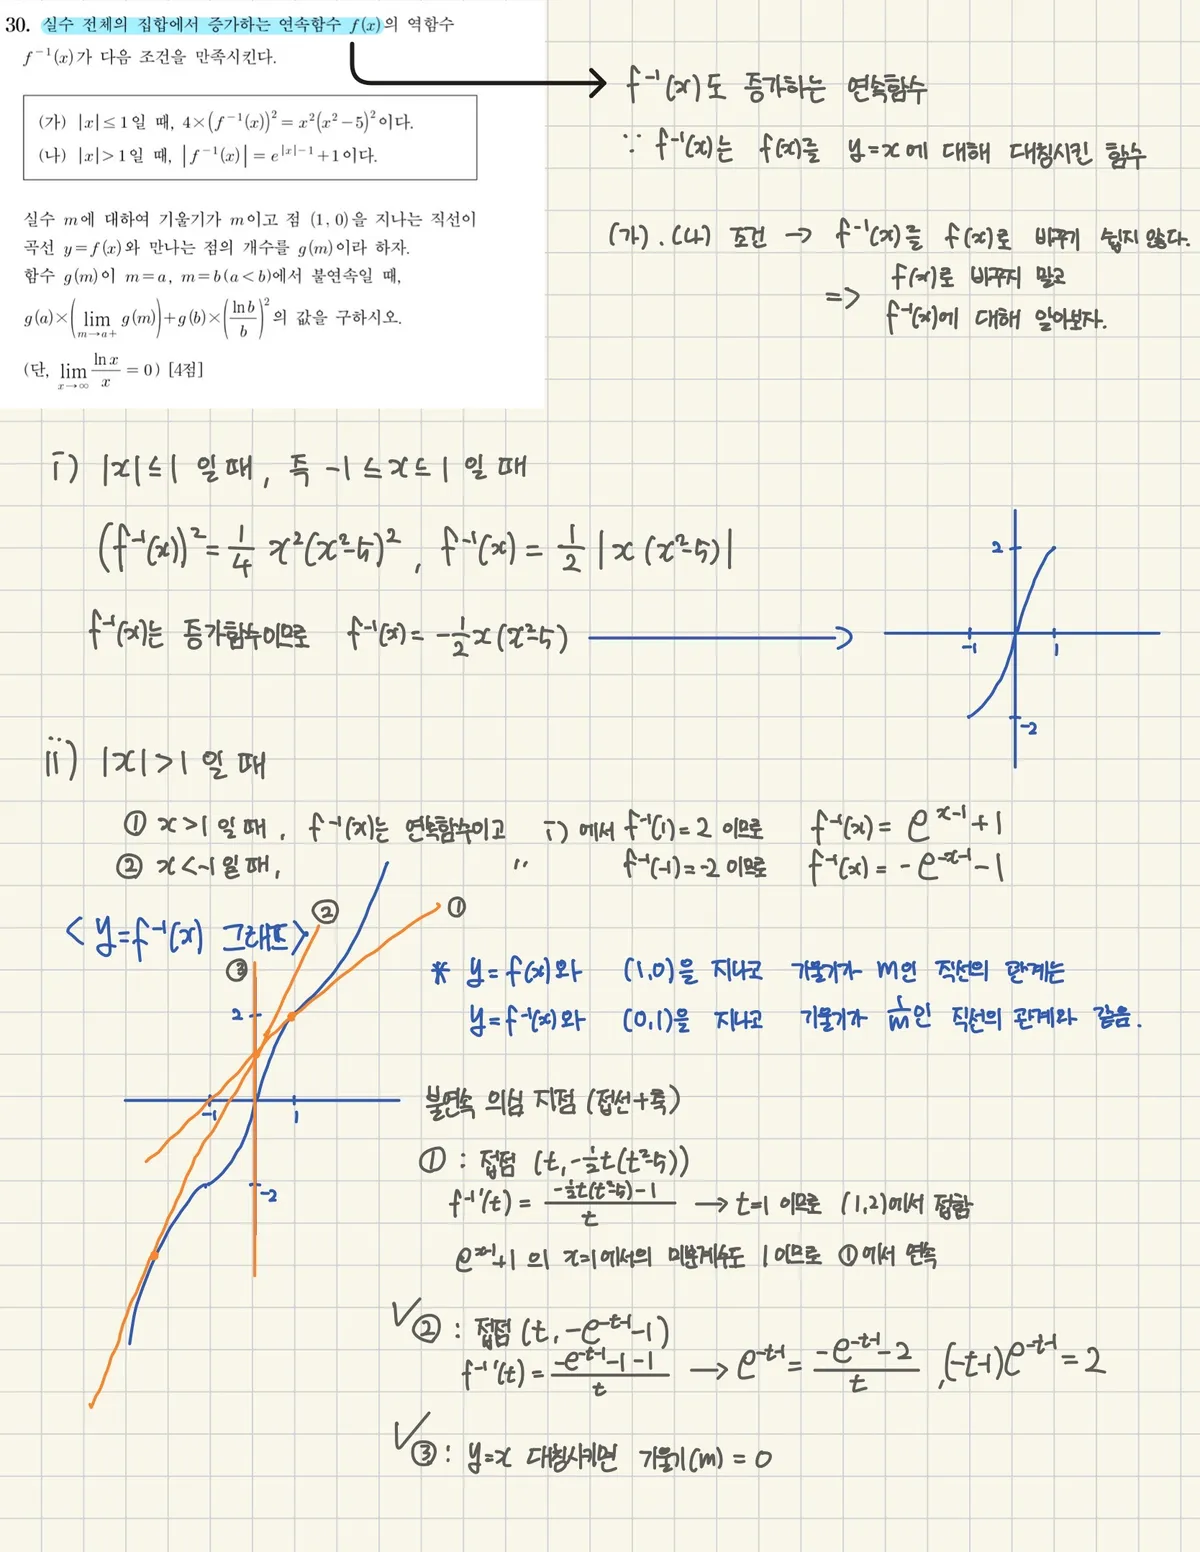 30. 실수 전체의 집합에서 증가하는 연속함수 f(x)의 역함수
f⁻¹(x)가 다음 조건을 만족시킨다.
(가) |x|≤1일 때, 4×(f⁻¹(x))²=x²(x²−5)²이다.
(나) |x|>1일 때, |f⁻¹(x)|=e^{|x|−1}+1이다.
실수 m에 대하여 기울기가 m이고 점 (1, 0)을 지나는 직선이
곡선 y=f(x)와 만나는 점의 개수를 g(m)이라 하자.
함수 g(m)이 m=a, m=b(a<b)에서 불연속일 때,
g(a)×(lim_{m→a+} g(m))+g(b)×(ln b/b)²의 값을 구하시오.
(단, lim_{x→∞} ln x/x = 0) [4점]
f⁻¹(x)도 증가하는 연속함수
∵ f⁻¹(x)는 f(x)를 y=x에 대해 대칭시킨 함수
(가), (나) 조건 → f⁻¹(x)를 f(x)로 바꾸기 쉽지 않다.
⇒ f(x)로 바꾸지 말고
f⁻¹(x)에 대해 알아보자.
i) |x|≤1 일 때, 즉 -1≤x≤1 일 때
(f⁻¹(x))²=1/4 x²(x²-5)², f⁻¹(x)=1/2|x(x²-5)|
f⁻¹(x)는 증가함수이므로 f⁻¹(x)=-1/2x(x²-5)
2
-1
1
-2
ii) |x|>1 일 때
① x>1 일 때, f⁻¹(x)는 연속함수이고 i)에서 f⁻¹(1)=2 이므로 f⁻¹(x)=e^{x-1}+1
② x<-1 일 때, '' f⁻¹(-1)=-2 이므로 f⁻¹(x)=-e^{-x-1}-1
<y=f⁻¹(x) 그래프>
② ①
③
2
-1
1
-2
* y=f(x)와 (1,0)을 지나고 기울기가 m인 직선의 관계는
y=f⁻¹(x)와 (0,1)을 지나고 기울기가 1/m인 직선의 관계와 같음.
불연속 의심 지점 (접선+축)
① : 접점 (t, -1/2t(t²-5))
f⁻¹'(t)=(-1/2t(t²-5)-1)/t → t=1 이므로 (1,2)에서 접함
e^{x-1}+1 의 x=1에서의 미분계수도 1이므로 ①에서 연속
✓② : 접점 (t, -e^{-t-1}-1)
f⁻¹'(t)=(-e^{-t-1}-1-1)/t → e^{-t-1}=(-e^{-t-1}-2)/t, (-t-1)e^{-t-1}=2
✓③ : y=x 대칭시키면 기울기(m)=0